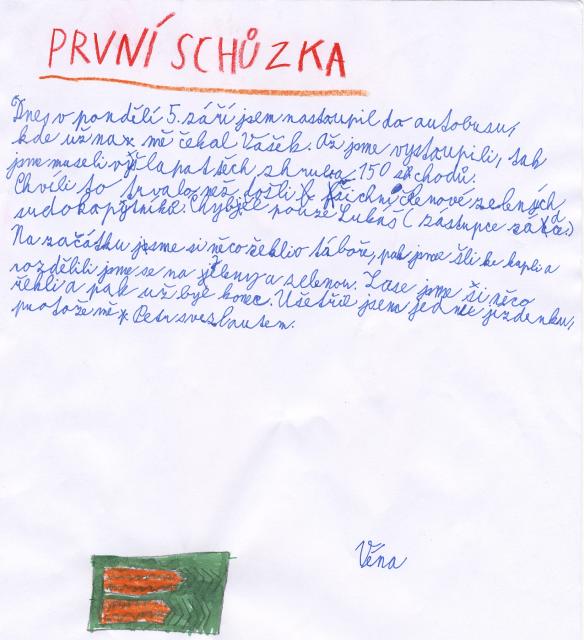 PRVNÍ SCHŮZKA
Dnes v pondělí 5. září jsem nastoupil do autobusu,
kde už na mě čekal Vašek. Až jsme vystoupili, tak
jsme museli vyšlapat těch, zhruba 150 schodů.
Chvíli to trvalo, než došli všichni členové zelených
sudokopytníků. Chyběl pouze Lukáš (zástupce
Na začátku jsme si něco řekli o táboře, pak jsme šli ke kapli a
rozdělili jsme se na a zelenou. Zase jsme si něco
řekli a pak už byl konec. Ušetřil jsem jednu jízdenku,
protože mě Petr svezl autem.
Véna